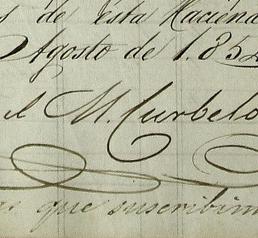 de esta Hacienda
Agosto de 1.852
el M. Curbelo
que suscribim